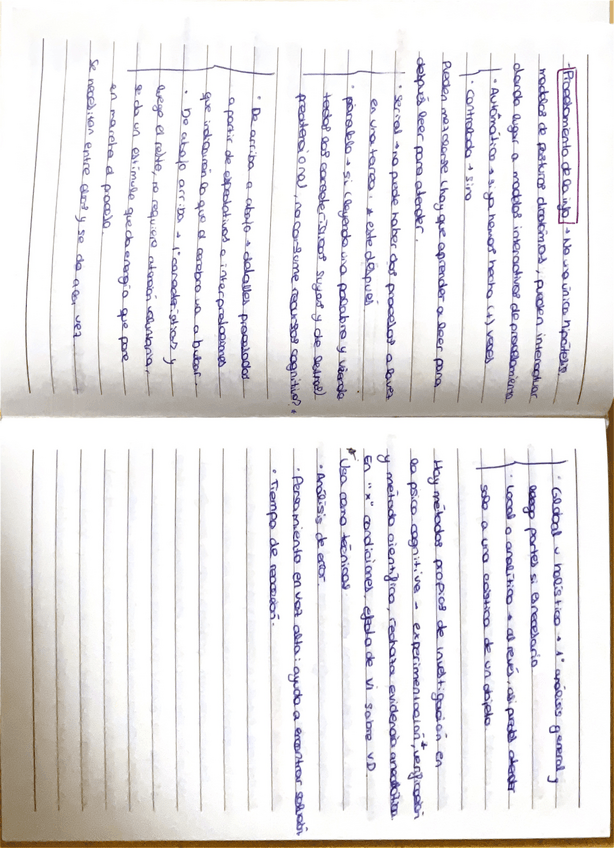 - Procesamiento de la info → No una única hipótesis,
modelos de posturas dicotómicas, pueden interactuar
dando lugar a modelos interactivos de procesamiento
· Automático → si ya hemos hecho (+) veces
· Controlado → si no
Pueden mezclarse (hay que aprender a leer para
después leer para atender.
· Serial → no puede haber dos procesos a la vez
en una tarea, * este después
· paralelo → si (leyendo una palabra y viendo
todas las características suyas y de letras)
predeterá o no, no consume recursos cognitivos? *
· De arriba a abajo → detalles procesados
a partir de expectativas e interpretaciones
que indicarán lo que el cerebro va a buscar.
· De abajo arriba → 1º características y
luego el resto, no requiere atención voluntaria,
si da un estímulo que da energía que pone
en marcha el proceso.
Se necesitan entre ellos y se da a en vez
· Global u holístico → 1º análisis general y
luego partes si es necesario
· Local o analítico → al revés, así podés atender
solo a una característica de un objeto
Hay métodos propios de investigación en
la psico cognitiva - experimentación, verificación
y método científico, rechaza evidencia anecdótica
En "x" condiciones, efecto de VI sobre VD
* Usa como técnicas
· Análisis de error.
· Pensamiento en voz alta: ayuda a encontrar solución
· Tiempo de reacción.